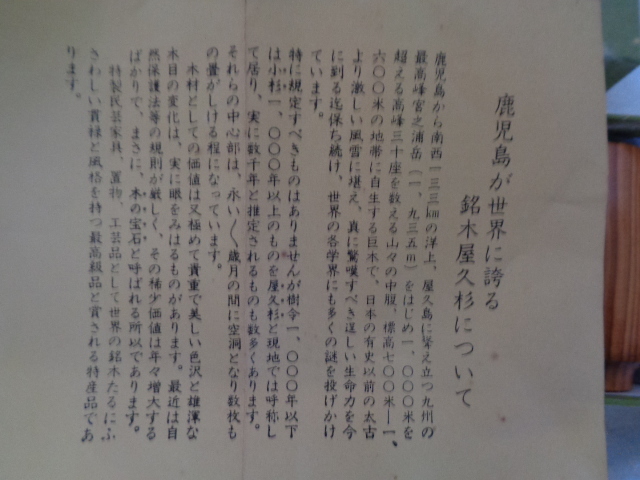 鹿児島が世界に誇る
銘木屋久杉について
鹿児島から南西一三三㎞の洋上、屋久島に聳え立つ九州の
最高峰宮之浦岳（一、九三五ｍ）をはじめ一、〇〇〇米を
超える高峰三十座を数える山々の中腹、標高七〇〇米―一、
六〇〇米の地帯に自生する巨木で、日本の有史以前の太古
より激しい風雪に堪え、真に驚嘆すべき逞しい生命力を今
に到る迄保ち続け、世界の各学界にも多くの謎を投げかけ
ています。
特に規定すべきものはありませんが樹令一、〇〇〇年以下
は小杉一、〇〇〇年以上のものを屋久杉と現地では呼称し
て居り、実に数千年と推定されるものも数多くあります。
それらの中心部は、永い〱歳月の間に空洞となり数枚も
の畳がしける程になっています。
木材としての価値は又極めて貴重で美しい色沢と雄渾な
木目の変化は、実に眼をみはるものがあります。最近は自
然保護法等の規則が厳しく、その稀少価値は年々増大する
ばかりで、まさに、木の宝石と呼ばれる所以であります。
特製民芸家具、置物、工芸品として世界の銘木たるにふ
さわしい貫禄と風格を持つ最高級品と賞される特産品であ
ります。